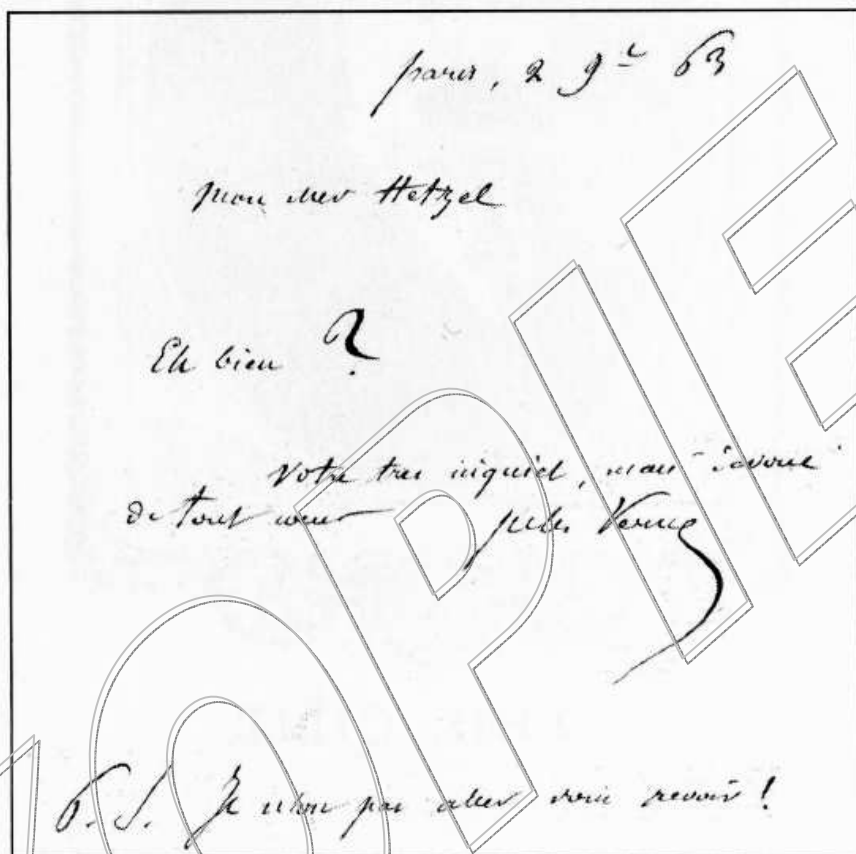 Paris, 2 9<sup>re</sup> 63
Mon cher Hetzel
Eh bien ?
Votre très inquiet, mais dévoué
de tout cœur Jules Verne
P. S. Je n'ose pas aller vous revoir !
OPIE